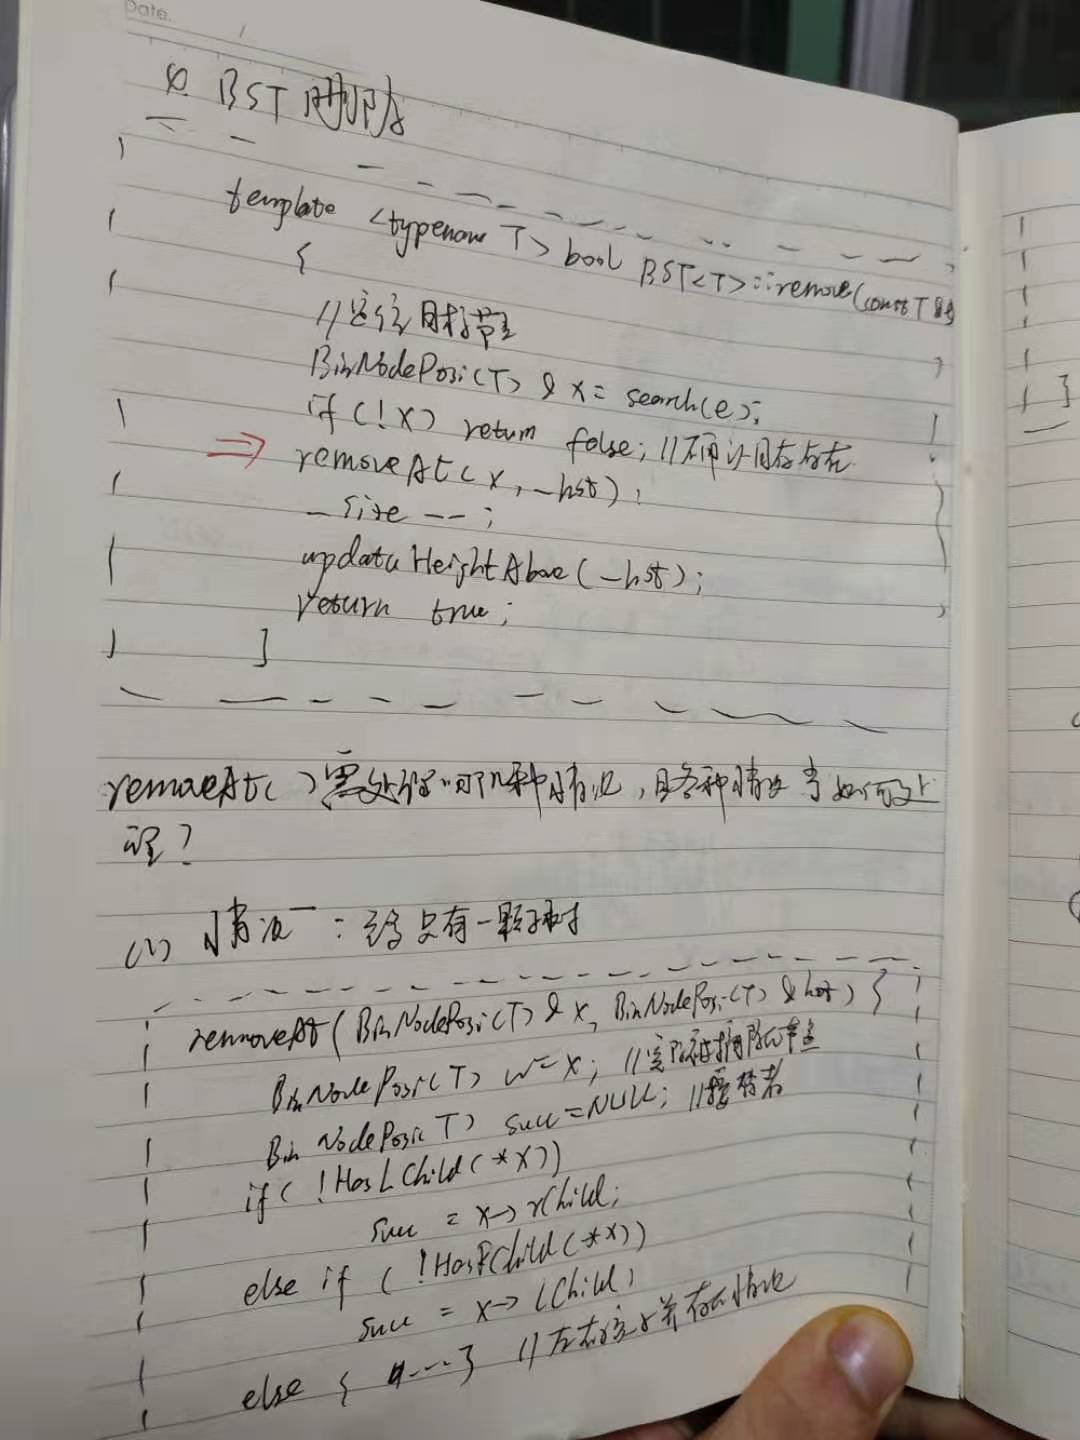 Date.
BST 删除
template <typename T> bool BST<T>::remove(const T &e)
{
//定位目标节点
BinNodePosi(T) & x = search(e);
if (!x) return false; //确认目标存在
⇒ removeAt(x, _hot);
_size --;
updateHeightAbove(_hot);
return true;
}
removeAt( )需处理哪几种情况,且各种情况当如何处
理?
(1) 情况一:至多只有一颗子树
removeAt(BinNodePosi(T) & x, BinNodePosi(T) & hot) {
BinNodePosi(T) w = x; //实际被摘除的节点
BinNodePosi(T) succ = NULL; //接替者
if ( !HasLChild(*x))
succ = x→rChild;
else if ( !HasRChild(*x))
succ = x→lChild;
else { ... } //左右孩子并存的情况